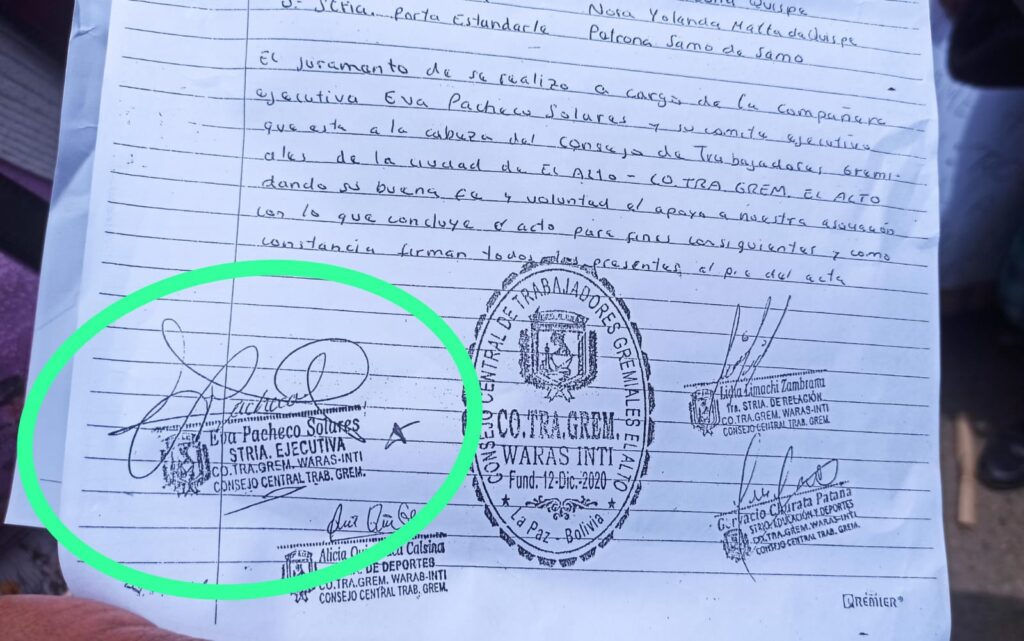 Quispe
5- Stria. Porta Estandarte Nora Yolanda Matta de Quispe
Patrona Samo de Samo
El juramento de se realizo a cargo de la compañera
ejecutiva Eva Pacheco Solares y su comite ejecutivo
que esta a la cabeza del Consejo de Trabajadores Gremi-
ales de la ciudad de El Alto - CO.TRA.GREM. EL ALTO
dando su buena fe y voluntad el apoyo a nuestra asociación
con lo que concluye el acto para fines consiguientes y como
constancia firman todos los presentes al pie del acta
Pacheco
Eva Pacheco Solares
STRIA. EJECUTIVA
CO.TRA.GREM. WARAS-INTI
CONSEJO CENTRAL TRAB. GREM.
Alicia Calsina
DE DEPORTES
CO.TRA.GREM. WARAB-INTI
CONSEJO CENTRAL TRAB. GREM.
CONSEJO CENTRAL DE TRABAJADORES GREMIALES EL ALTO
CO.TRA.GREM.
WARAS INTI
Fund. 12-Dic.-2020
La Paz - Bolivia
Lidia Limachi Zambrana
Tra. STRIA. DE RELACIÓN
CO.TRA.GREM. WARAS-INTI
CONSEJO CENTRAL TRAB. GREM.
Gervacio Churata Patana
STRIO. EDUCACIÓN Y DEPORTES
CO.TRA.GREM. WARAS-INTI
CONSEJO CENTRAL TRAB. GREM.
PREMIER®